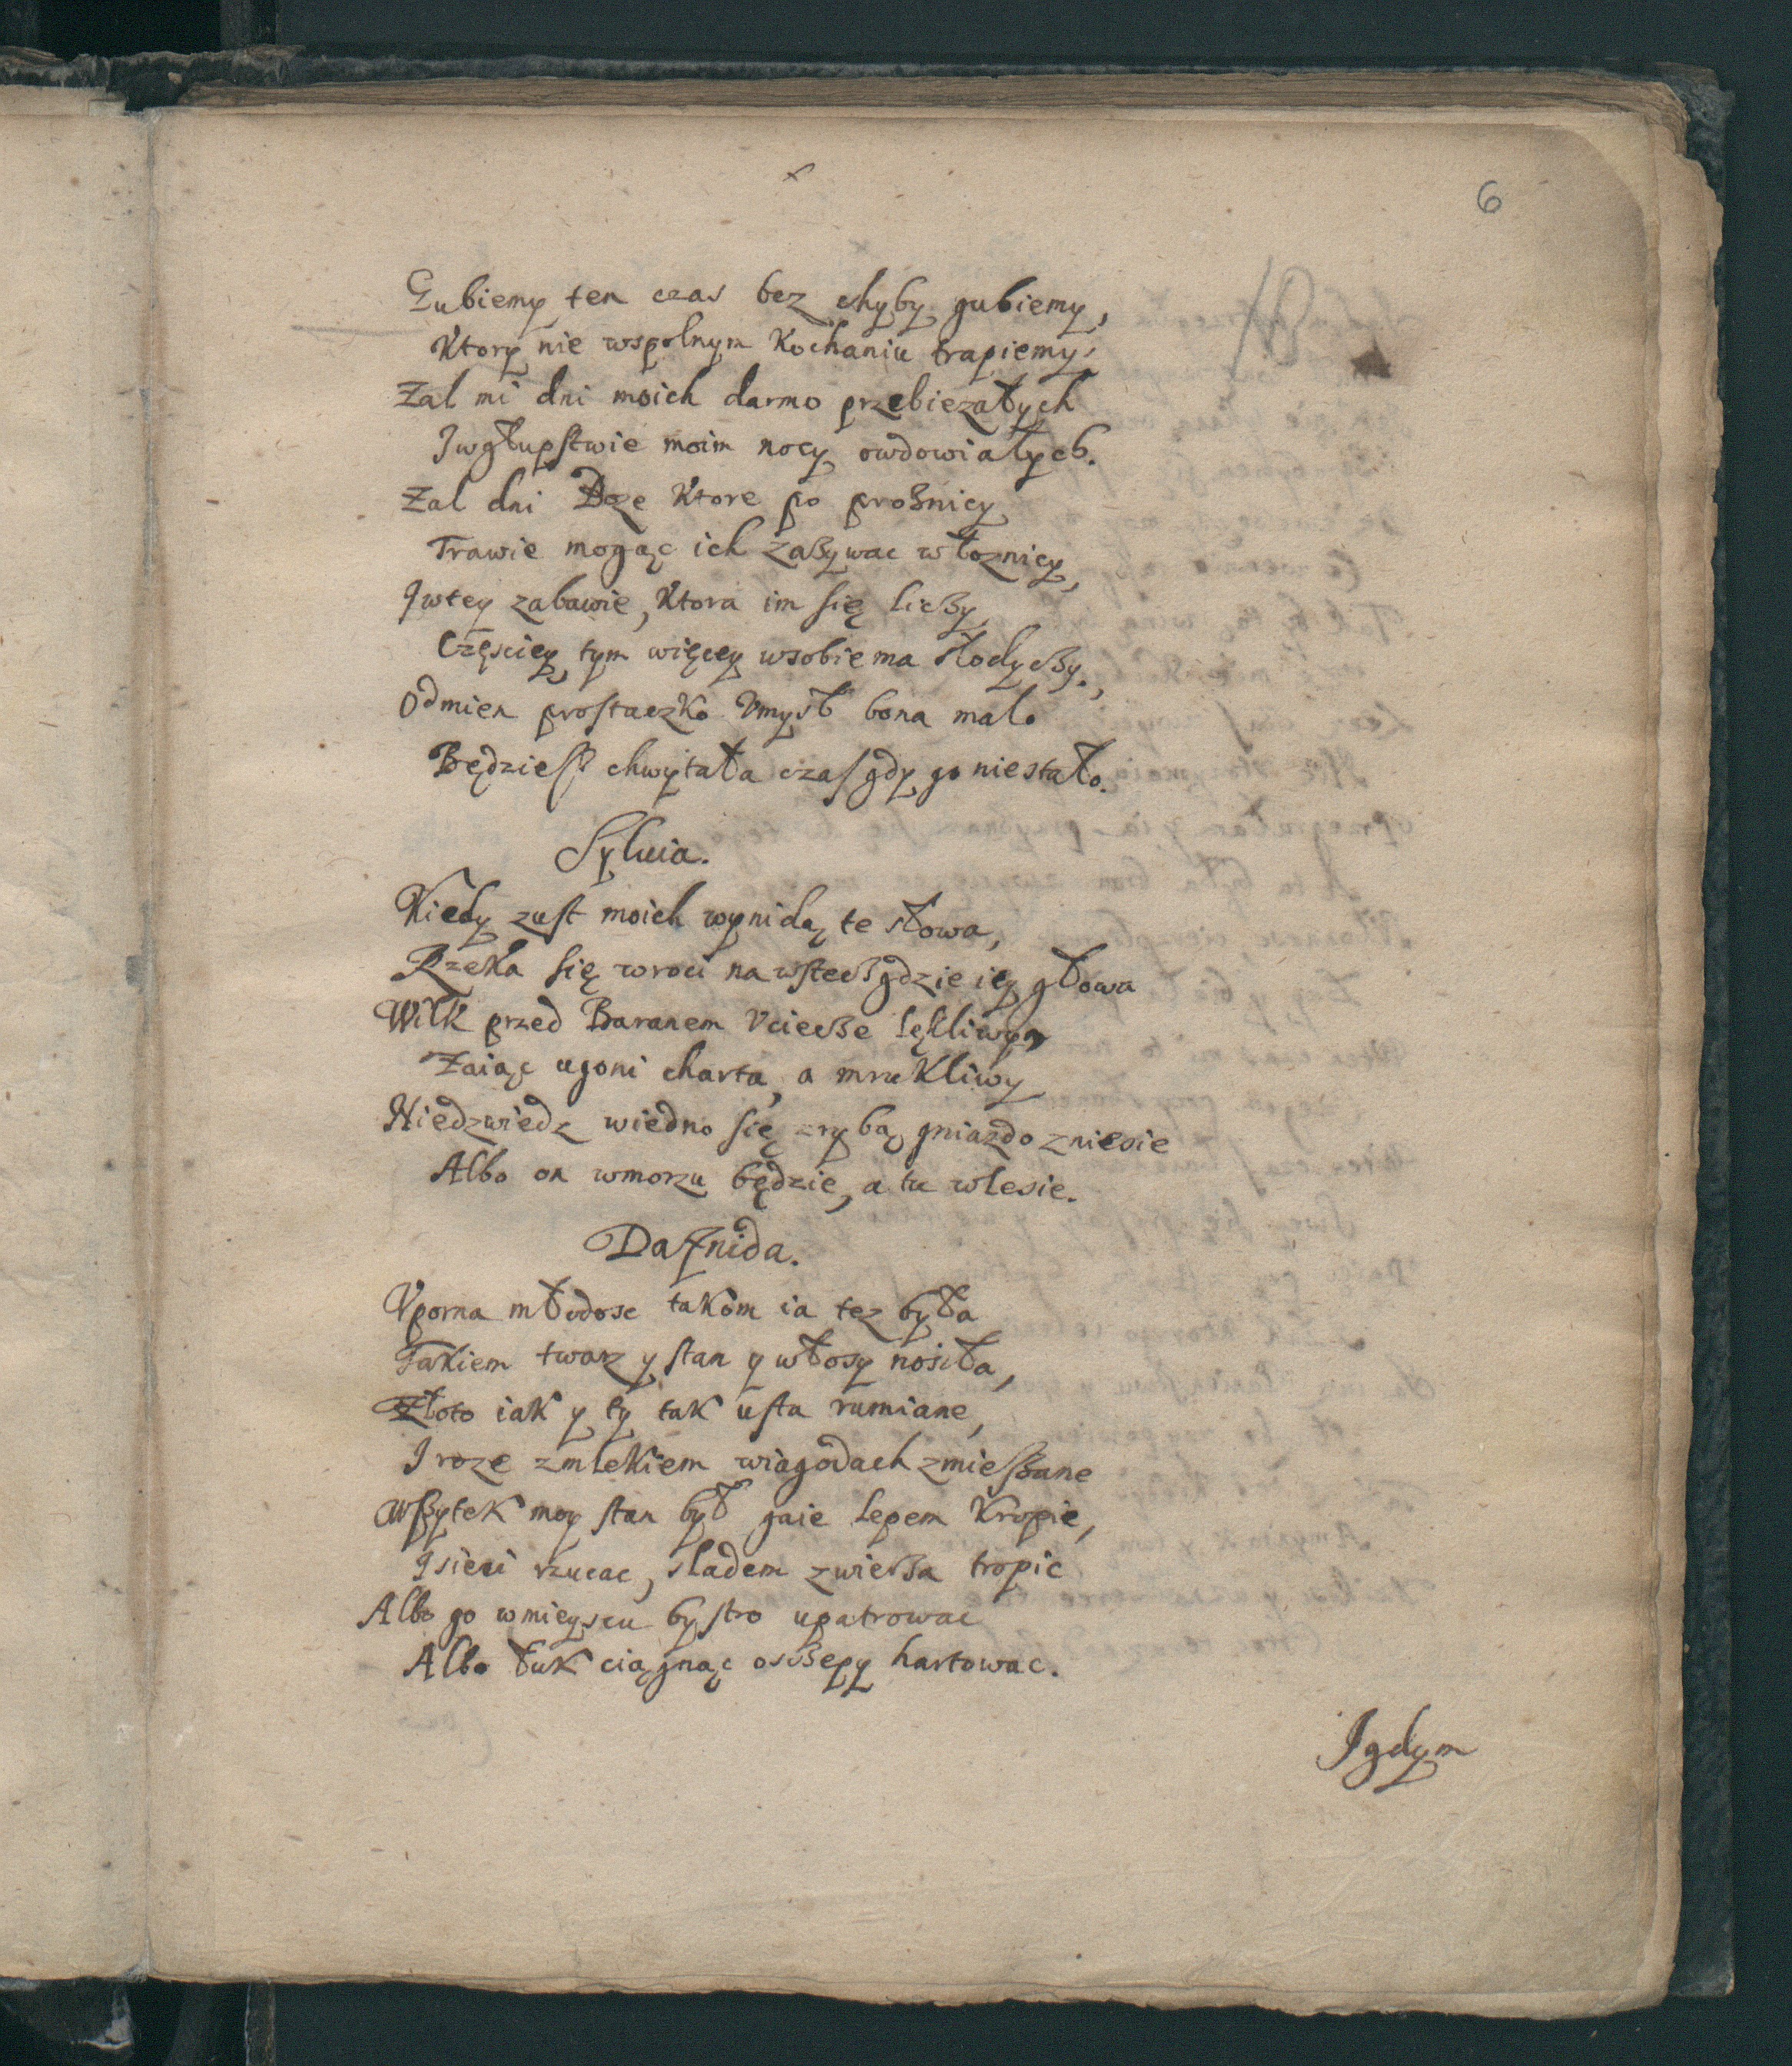 6
Gubiemy ten czas bez chyby gubiemy,
Ktory nie wspolnym Kochaniu trapiemy,
Zal mi dni moich darmo przebiezałych
Iwgłupstwie moim nocy owdowiałych.
Zal dni Boze Ktore po prożnicy
Trawie mogąc ich zaßywac włoznicy,
Iwtey zabawie, Ktora im się licßy
Częsciey, tym więcey wsobie ma słodycßy.,
Odmien prostaczko Vmysł bona mało
Będzieß chwytała czas gdy go niestało.
Sylwia.
Kiedy zust moich wynidą te słowa,
Rzeka się wroci na wstecß gdzie iey głowa
Wilk przed Baranem Vciecße lękliwy,
Zaiąc ugoni charta, a mrukliwy
Niedzwiedz wiedno się zrybą gniazdo zniesie
Albo on wmorzu będzie, a tu wlesie.
Dafnida.
Vporna młodosc takom ia tez była
Takiem twarz y stan y włosy nosiła,
Złoto iak y ty tak usta rumiane,
I roze zmlekiem wiagodach zmießane
Wßytek moy stan był gaie lepem Kropic,
Isieci rzucac, sladem zwierßa tropic
Albo go wmieyscu bystro upatrowac
Albo łuk ciągnąc oscßepy hartowac.
Igdym